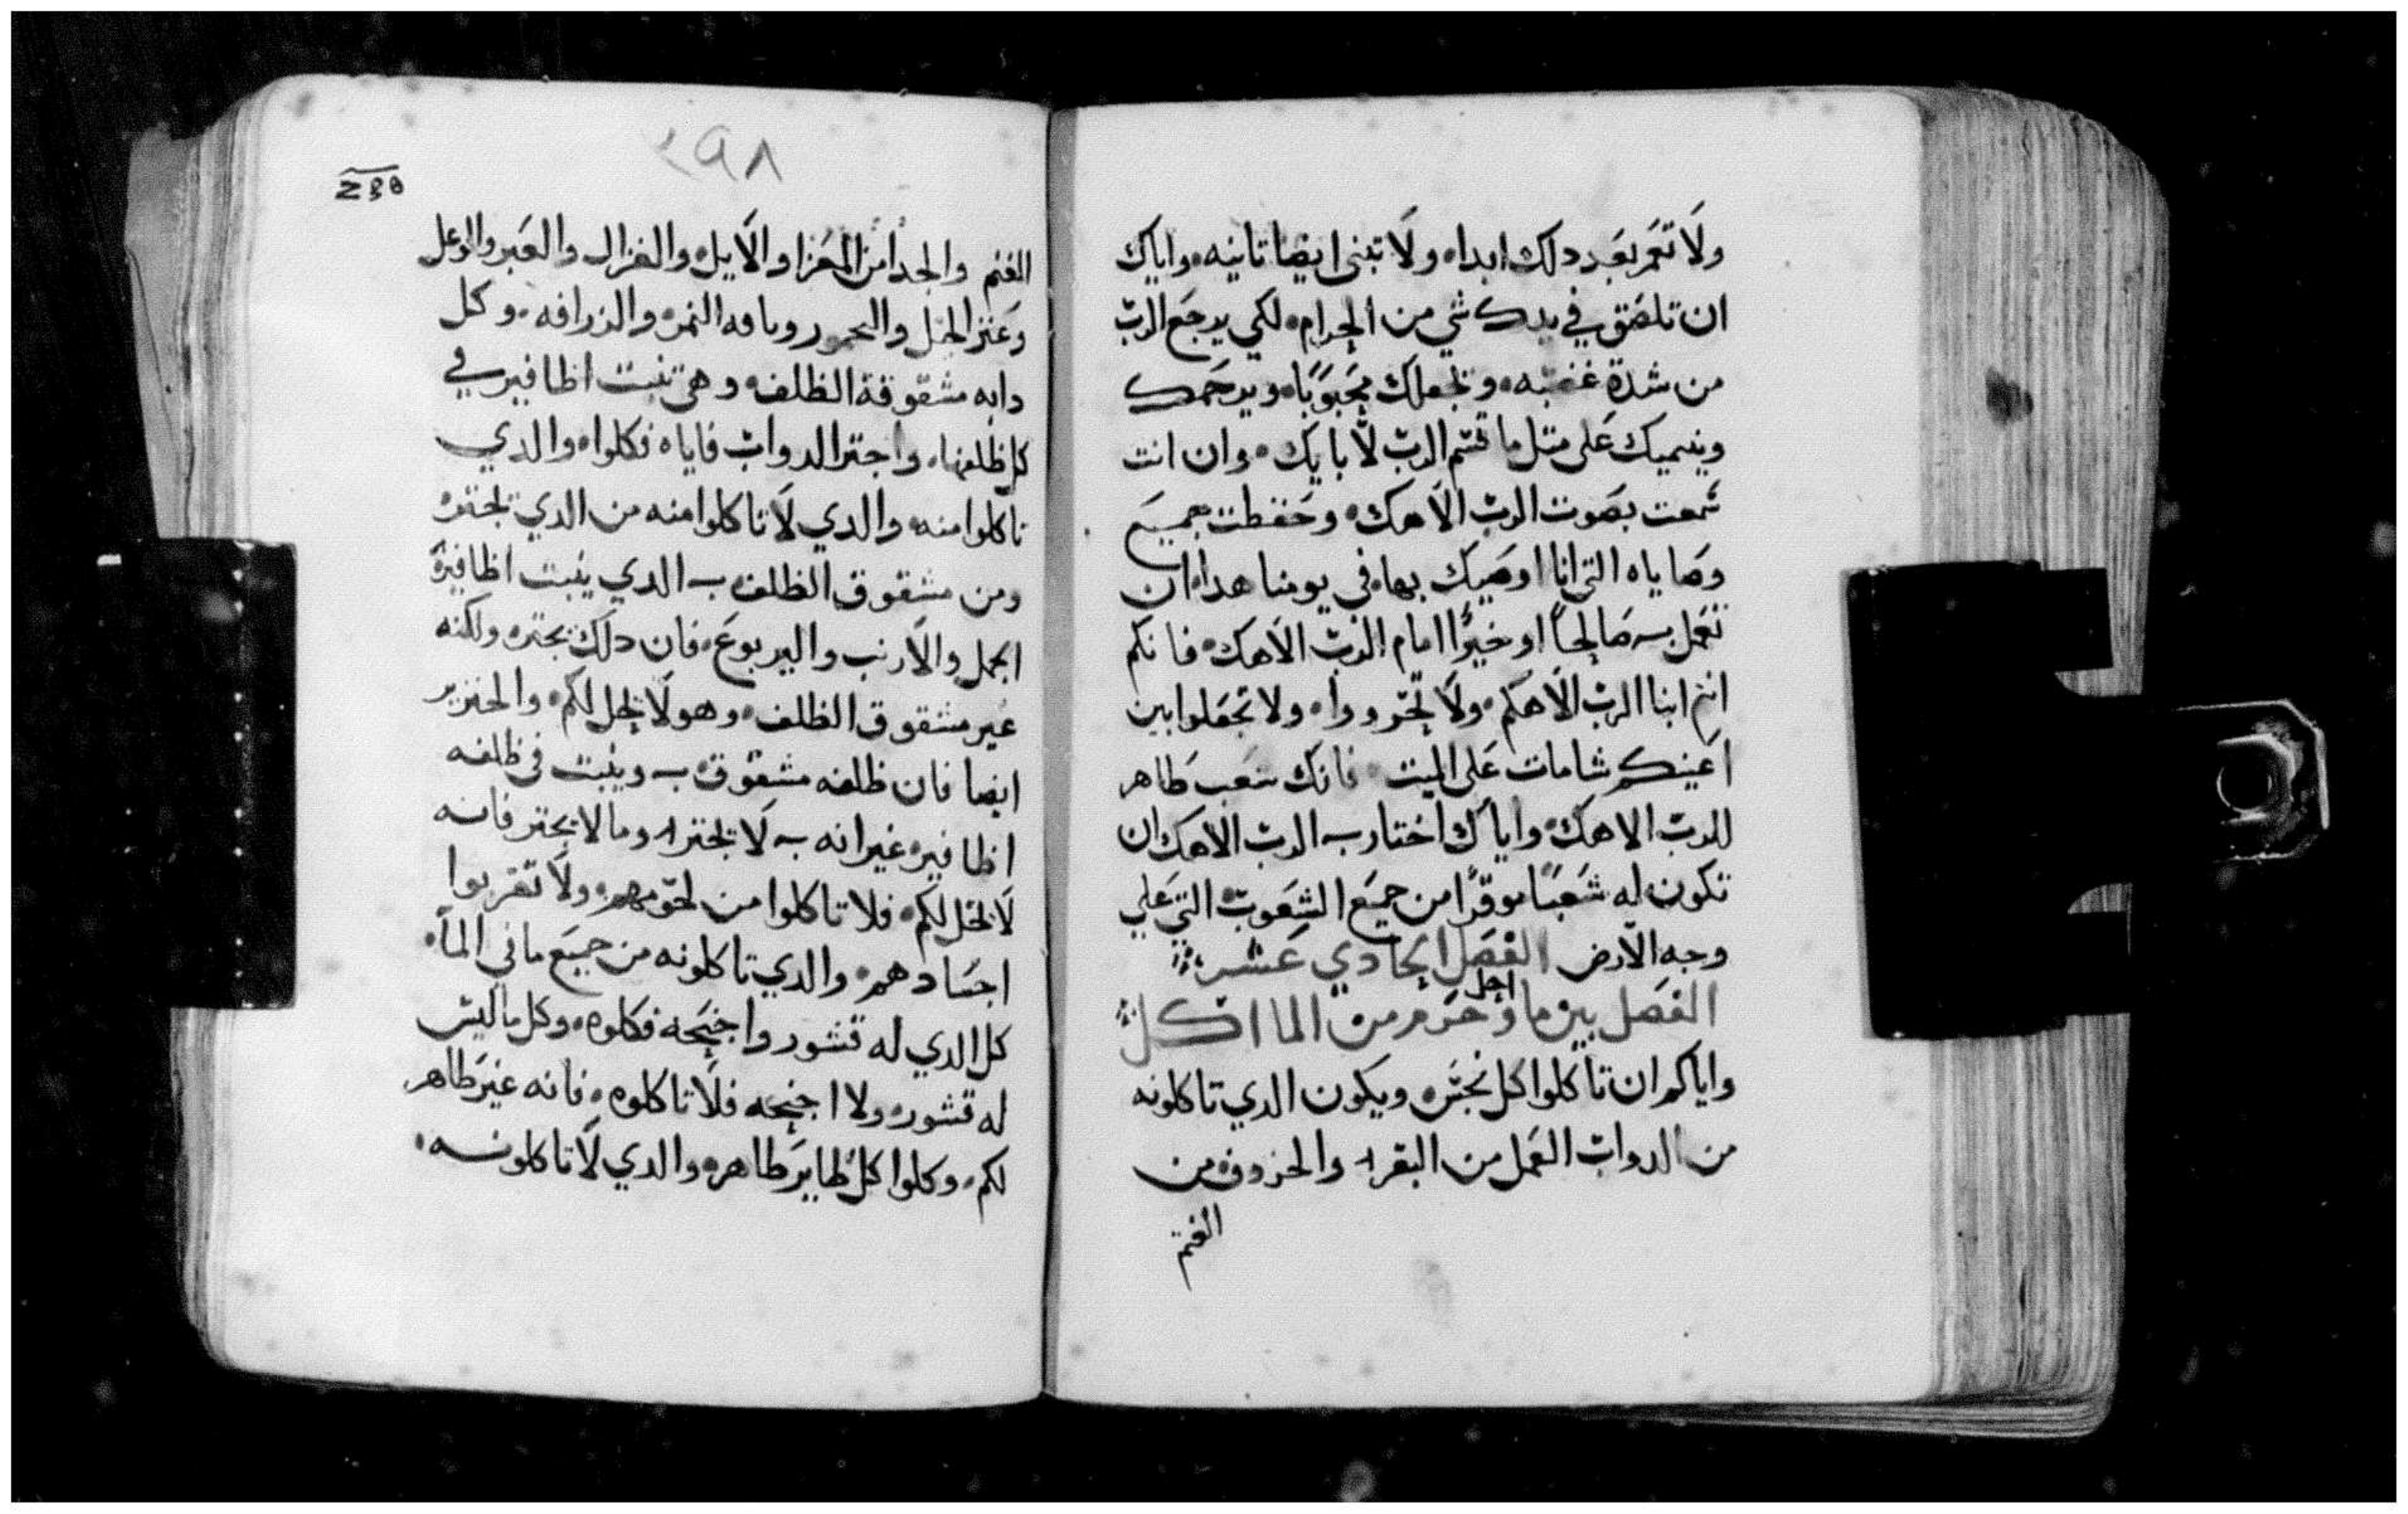 ولا تعمر بعد دلك ابدا، ولا تبنى ايضا تانيه، واياك
ان تلصق في يدك شي من الحرام، لكي يرجع الرب
من شدة غضبه، وتجعلك محبوبا، ويرحمك
وينميك على متل ما قسم الرب لابايك، وان انت
سمعت بصوت الرب الاهك، وحفظت جميع
وصاياه التي انا اوصيك بها، في يومنا هدا، ان
تعمل به صالحا او خيرا امام الرب الاهك، فانكم
انتم ابنا الرب الاهكم، ولا تجرووا، ولا تجعلوا بين
اعينكم شامات على الميت، فانك شعب طاهر
للرب الاهك، واياك اختار به الرب الاهك ان
تكون له شعبا موقرا من جميع الشعوب، التي علي
وجه الارض الفصل الحادي عشر
الفصل بين ما احل وحرم من الما اكل
واياكم ان تاكلوا كل نجس، ويكون الدي تاكلونه
من الدواب العمل من البقر، والخروف من
الغنم
٢٩٨
الغنم والجدا من المعزا والايل، والغزال والعبر والوعل
وعنز الجبل واليحمور وباقه النمر، والزرافه، وكل
دابه مشقوقة الظلف، وهي تنبت اظافير في
كل ظلفها، واجتر الدواب فاياه فكلوا، والدي
تاكلوا منه، والدي لا تاكلوا منه من الدي تجتره
ومن مشقوق الظلف به الدي ينبت اظافيره
الجمل والارنب واليربوع، فان دلك يجتره ولكنه
غير مشقوق الظلف، وهو لا يحل لكم، والخنزير
ايضا فان ظلفه مشقوق به وينبت في ظلفه
اظافيره غير انه به لا يجتر، وما لا يجتر فانه
لا يحل لكم، فلا تاكلوا من لحومهم، ولا تقربوا
اجسادهم، والدي تاكلونه من جميع ما في الماء،
كل الدي له قشور واجنحه فكلوه، وكل ما ليس
له قشور، ولا اجنحه فلا تاكلوه، فانه غير طاهر
لكم، وكلوا كل طاير طاهر، والدي لا تاكلونه،